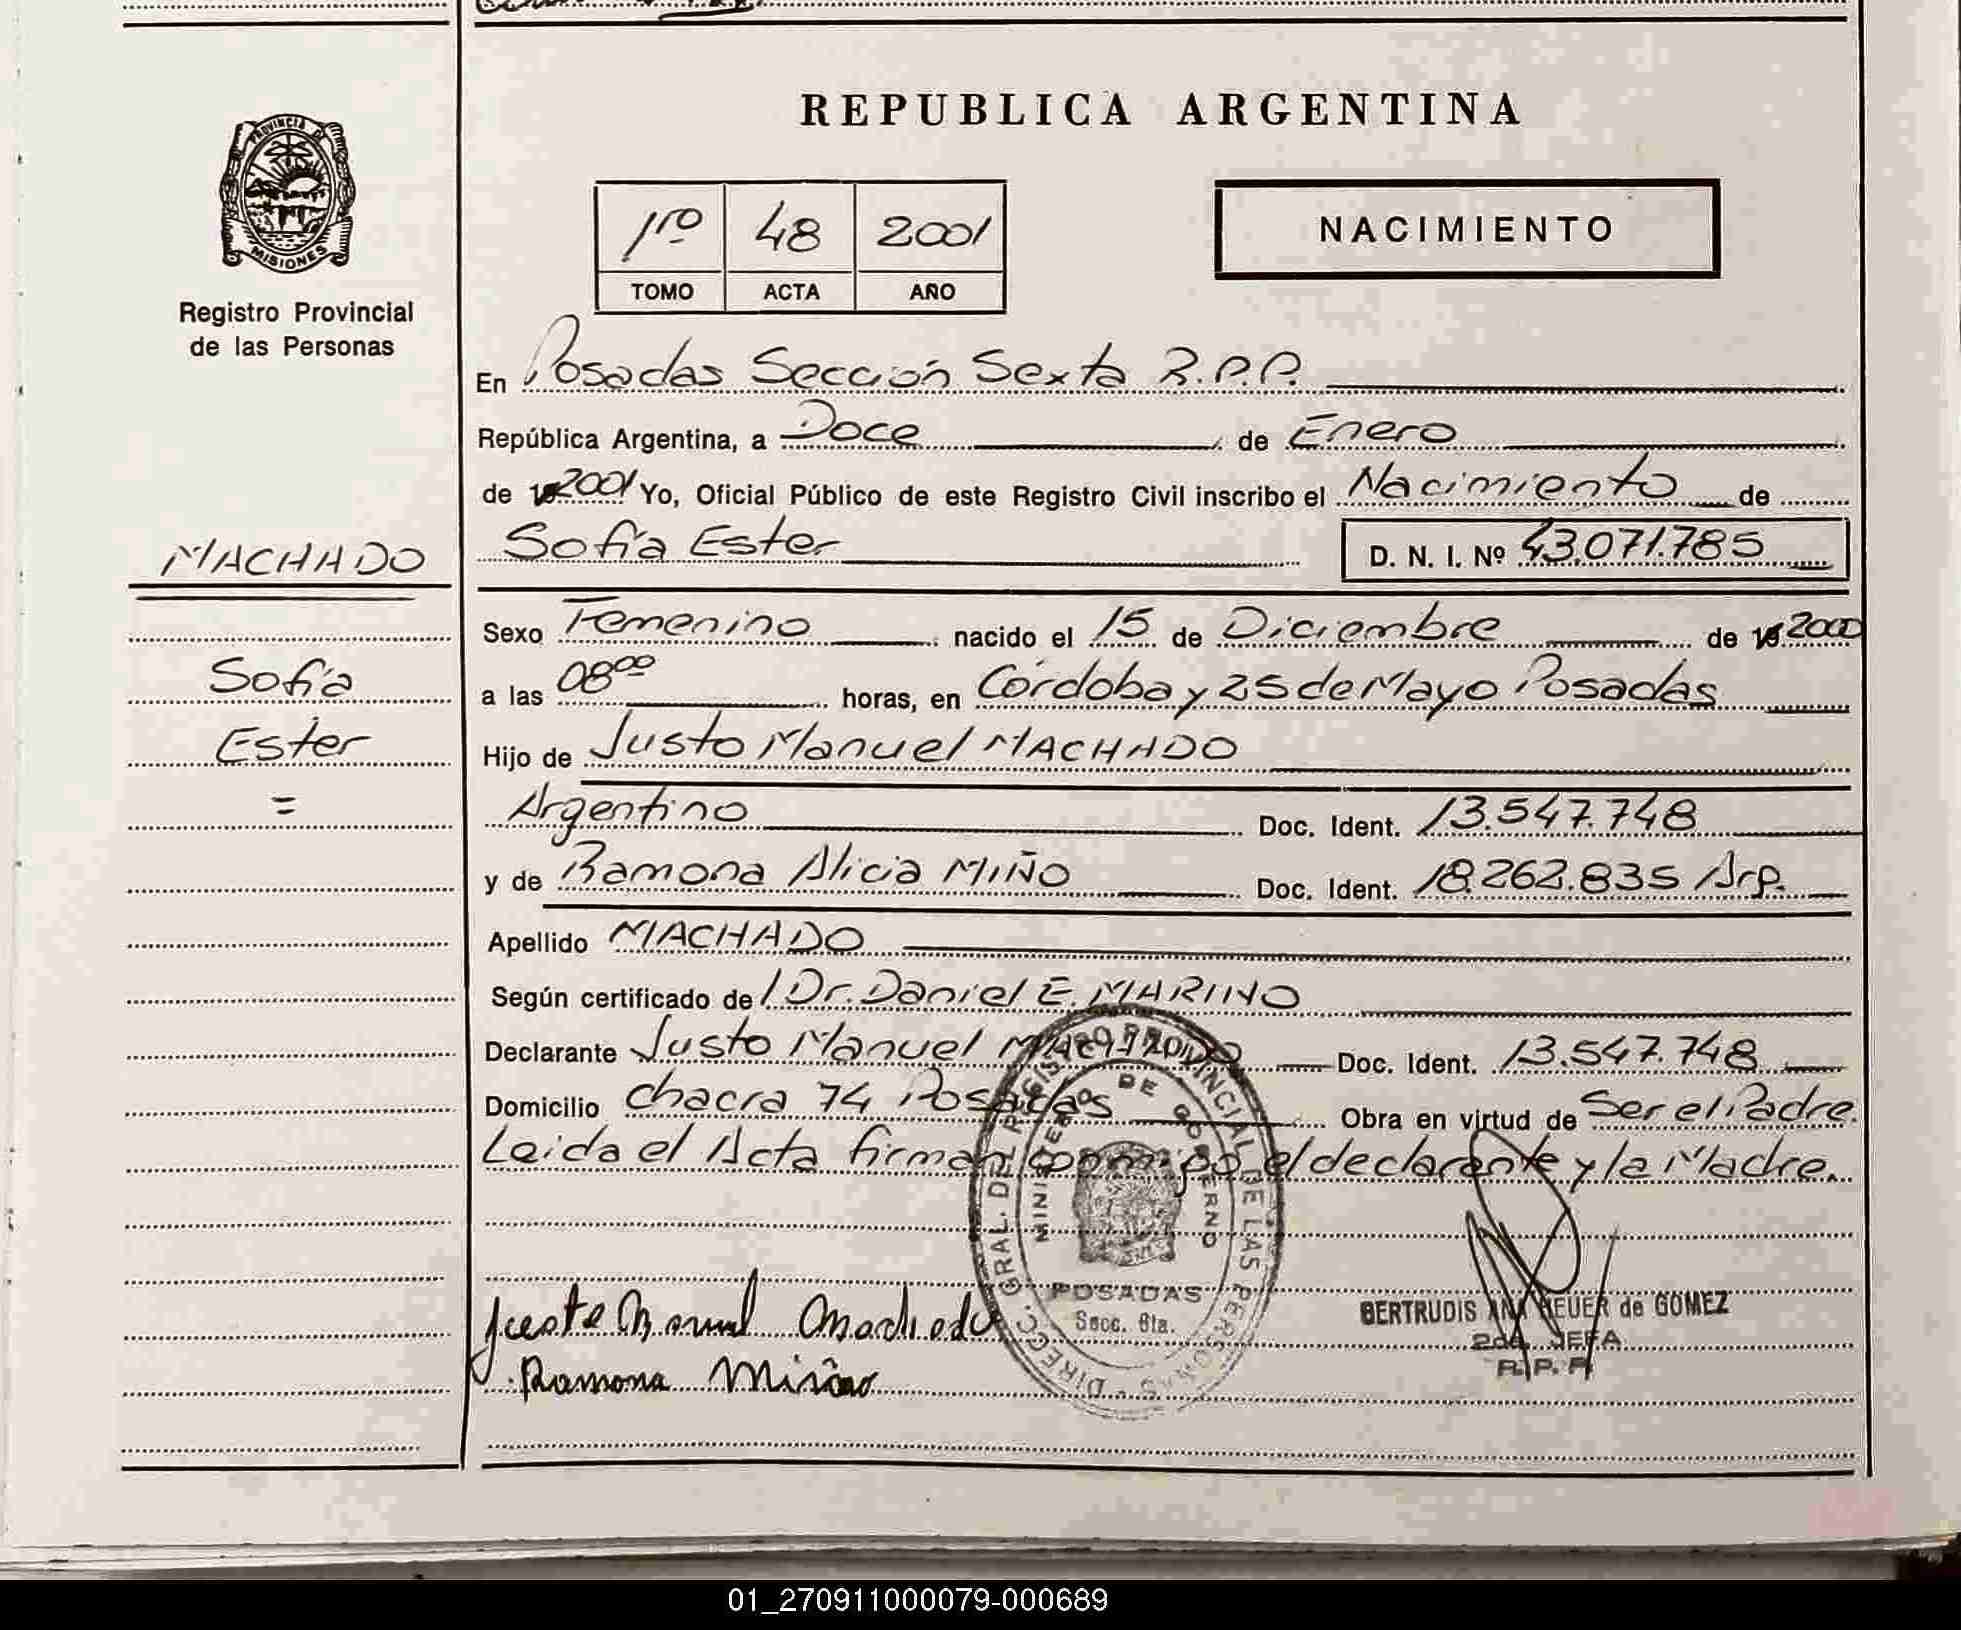 REPUBLICA ARGENTINA
PROVINCIA DE
MISIONES
Registro Provincial
de las Personas
1ro 48 2001
TOMO ACTA AÑO
NACIMIENTO
En Posadas Sección Sexta R.P.P.
República Argentina, a Doce de Enero
de 2001 Yo, Oficial Público de este Registro Civil inscribo el Nacimiento de
MACHADO
Sofía Ester D. N. I. Nº 43.071.785
Sexo Femenino nacido el 15 de Diciembre de 2000
Sofía
a las 08 00 horas, en Córdoba y 25 de Mayo Posadas
Ester
Hijo de Justo Manuel MACHADO
=
Argentino Doc. Ident. 13.547.748
y de Ramona Alicia MIÑO Doc. Ident. 18.262.835 Arg.
Apellido MACHADO
Según certificado de Dr. Daniel E. MARINO
Declarante Justo Manuel MACHADO Doc. Ident. 13.547.748
Domicilio chacra 74 Posadas Obra en virtud de Ser el Padre.
Leida el Acta firman conmigo el declarante y la Madre.
DIRECC. GRAL. DEL REGISTRO PROVINCIAL DE LAS PERSONAS
MINISTERIO DE GOBIERNO
POSADAS
Secc. 6ta.
Justo Manuel Machado
Ramona Miño
GERTRUDIS ANA HEUER de GOMEZ
2da. JEFA
R.P.P.
01_270911000079-000689